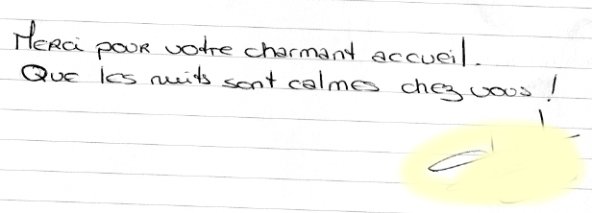 Merci pour votre charmant accueil.
Que les nuits sont calmes chez vous !